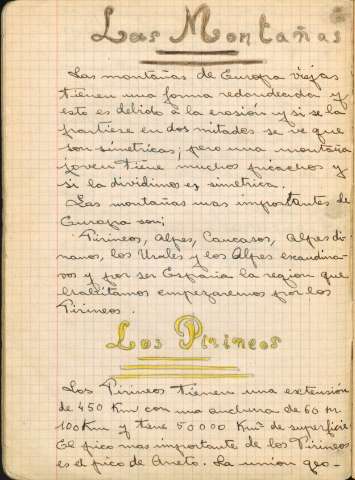 Las Montañas
Las montañas de Europa viejas
tienen una forma redondeada y
esto es debido á la erosión y si se la
partiese en dos mitades se ve que
son simetricas, pero una montaña
joven tiene muchos picachos y
si la dividimos es simetrica.
Las montañas mas importantes de
Europa son;
Pirineos, Alpes, Caucasos, Alpes di-
naros, los Urales y los Alpes escandina-
vos y por ser España la region que
habitamos empezaremos por los
Pirineos.
Los Pirineos
Los Pirineos tienen una extensión
de 450 Km con una anchura de 60 á
100 Km y tiene 50000 Km² de superficie
El pico mas importante de los Pirineos
es el pico de Aneto. La union geo-